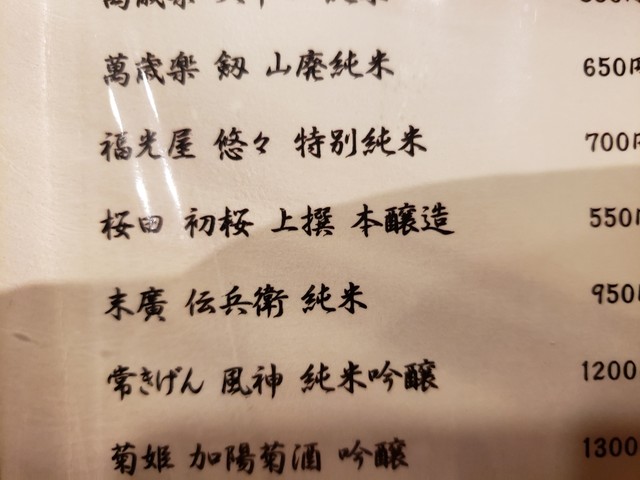 萬歳楽 剱 山廃純米 650円
福光屋 悠々 特別純米 700円
桜田 初桜 上撰 本醸造 550
末廣 伝兵衛 純米 950
常きげん 風神 純米吟醸 1200
菊姫 加陽菊酒 吟醸 1300